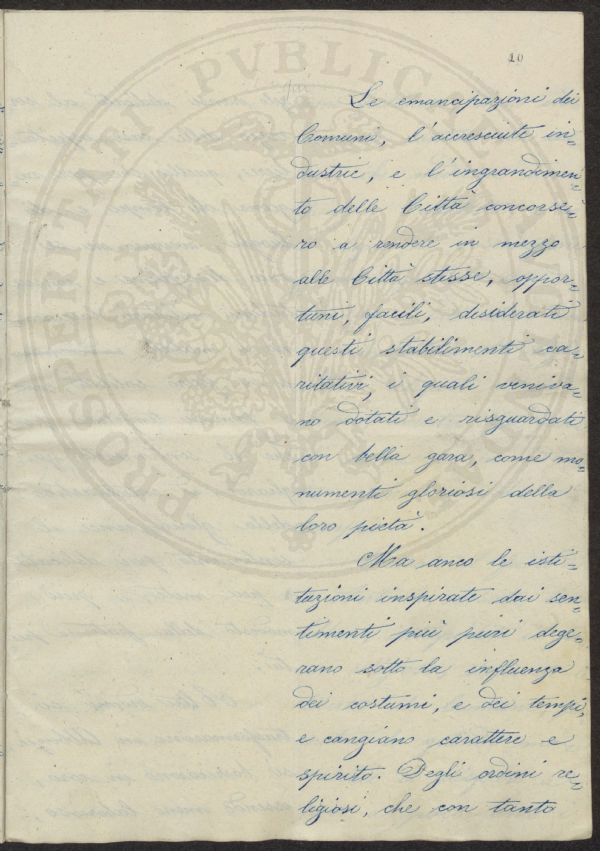 10
Le emancipazioni dei
Comuni, l'accresciute in=
dustrie, e l'ingrandimen=
to delle Città concorse=
ro a rendere in mezzo
alle Città stesse, oppor=
tuni, facili, disiderati
questi stabilimenti ca=
ritativi, i quali veniva=
no dotati e risguardati
con bella gara, come mo=
numenti gloriosi della
loro pietà.
Ma anco le isti=
tuzioni inspirate dai sen=
timenti più puri dege=
rano sotto la influenza
dei costumi, e dei tempi,
e cangiano carattere e
spirito. Degli ordini re=
ligiosi, che con tanto
PROSPERITATI PVBLICAE